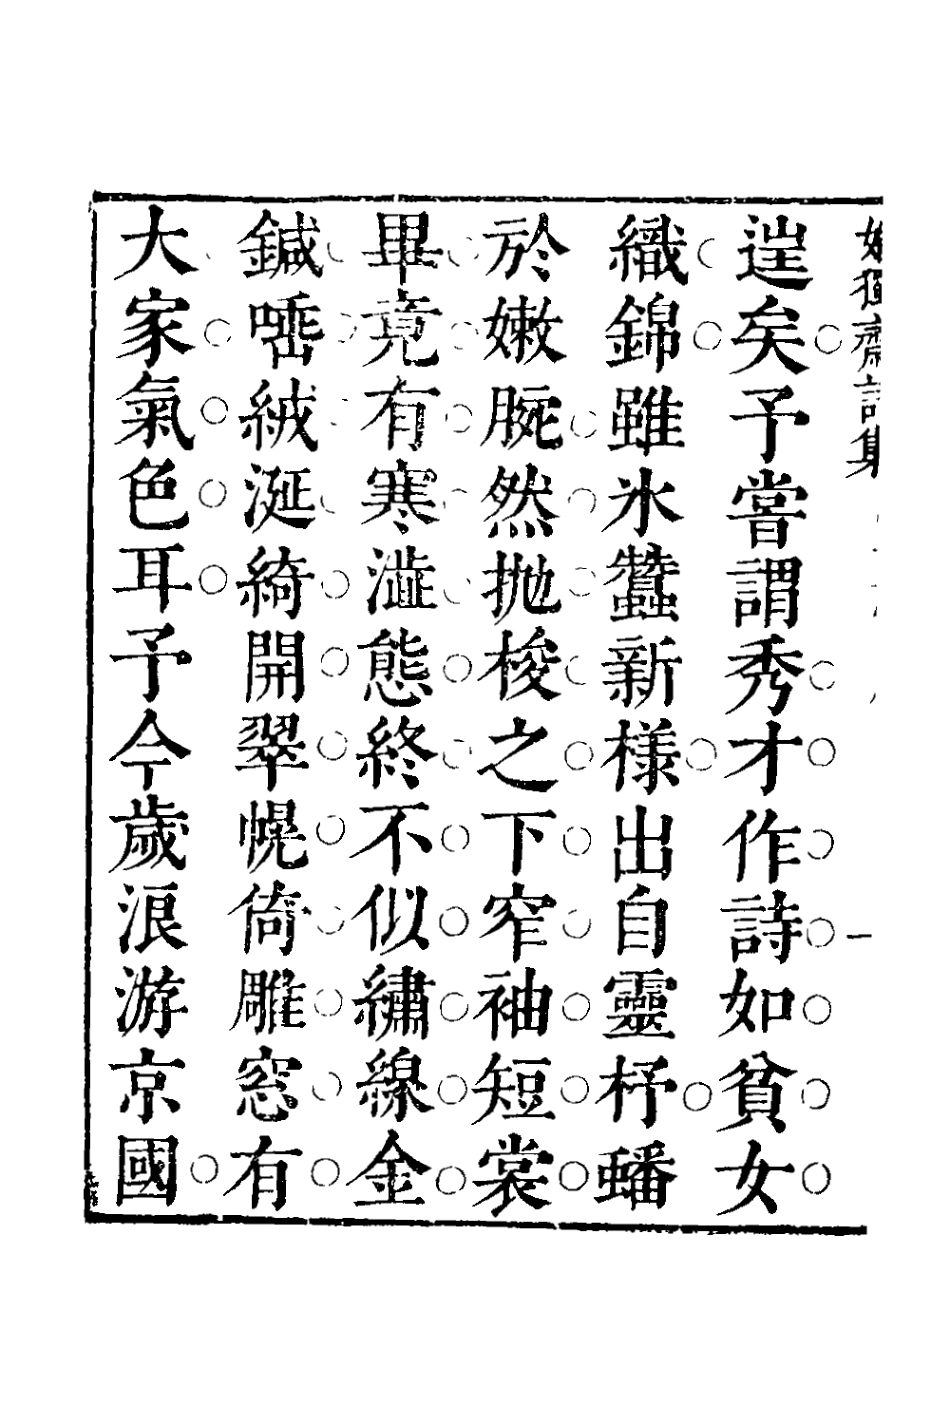 齋詩集
一
遑矣予嘗謂秀才作詩如貧女
織錦雖氷蠶新樣出自靈杼蟠
於嫩腕然拋梭之下窄袖短裳
畢竟有寒澁態終不似繡線金
鍼唾絨涎綺開翠幌倚雕窓有
大家氣色耳予今歲浪游京國